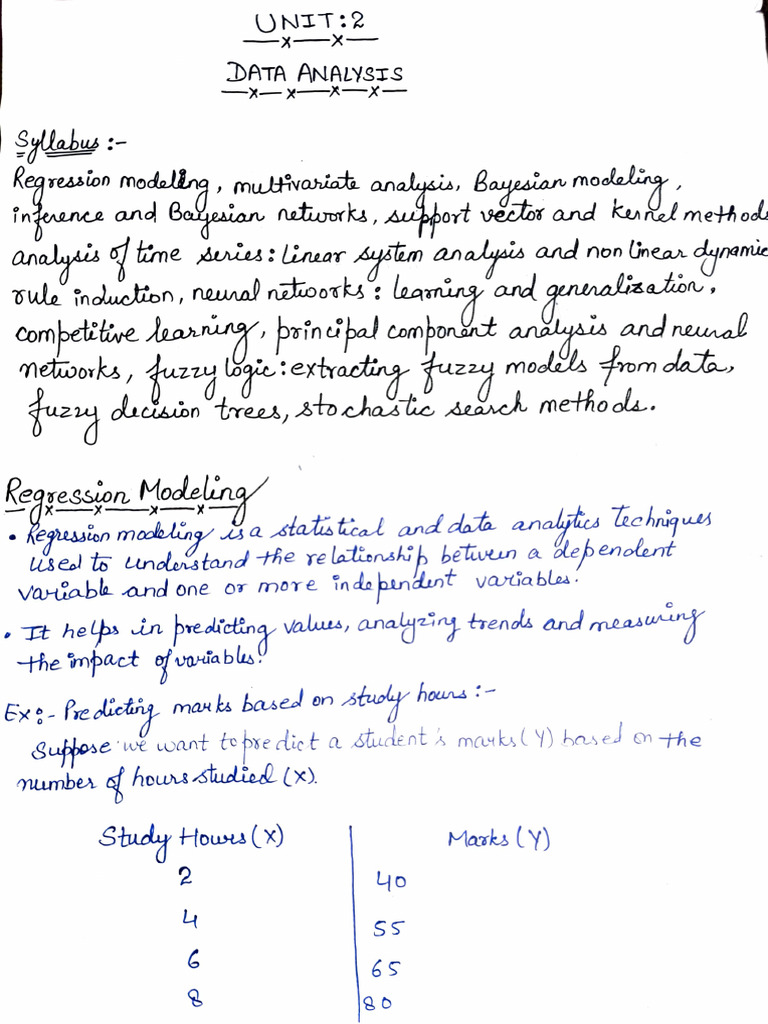 UNIT:2
DATA ANALYSIS
Syllabus :-
Regression modeling, multivariate analysis, Bayesian modeling,
inference and Bayesian networks, support vector and kernel methods
analysis of time series: linear system analysis and non linear dynamic
rule induction, neural networks: learning and generalization,
competitive learning, principal component analysis and neural
networks, fuzzy logic: extracting fuzzy models from data,
fuzzy decision trees, stochastic search methods.
Regression Modeling
• Regression modeling is a statistical and data analytics techniques
used to understand the relationship between a dependent
variable and one or more independent variables.
• It helps in predicting values, analyzing trends and measuring
the impact of variables.
Ex:- Predicting marks based on study hours :-
Suppose we want to predict a student's marks (Y) based on the
number of hours studied (X).
Study Hours (X) Marks (Y)
2 40
4 55
6 65
8 80